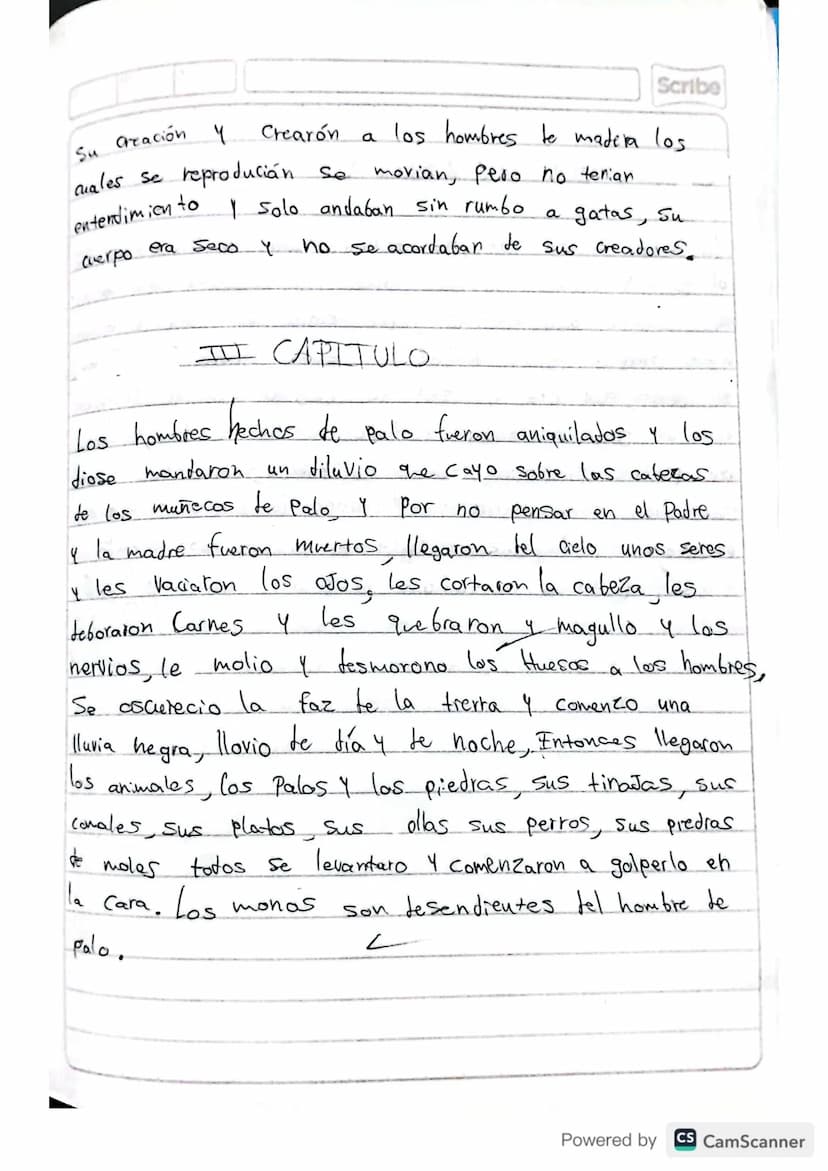 Scribe
Su creación y Crearón a los hombres de madera los
cuales se reproducián se movian, pero no tenian
entendimiento y solo andaban sin rumbo a gatas, su
cuerpo era seco y no se acordaban de sus creadores.
III CAPITULO
Los hombres hechos de palo fueron aniquilados y los
diose mandaron un diluvio que cayo sobre las cabezas
de los muñecos de palo, y por no pensar en el Padre
y la madre fueron muertos, llegaron del cielo unos seres
y les vaciaron los ojos, les cortaron la cabeza, les
deboraron Carnes y les quebraron y magullo y los
nervios, le molio y desmorono los Huesos a los hombres,
Se oscurecio la faz de la tierra y comenzo una
lluvia negra, llovio de día y de noche, Entonces llegaron
los animales, los Palos y las piedras, sus tinajas, sus
comales, sus platos, sus ollas sus perros, sus piedras
de moler todos se levantaro y comenzaron a golperlo en
la cara. Los monos son desendientes del hombre de
palo.
Powered by CS CamScanner